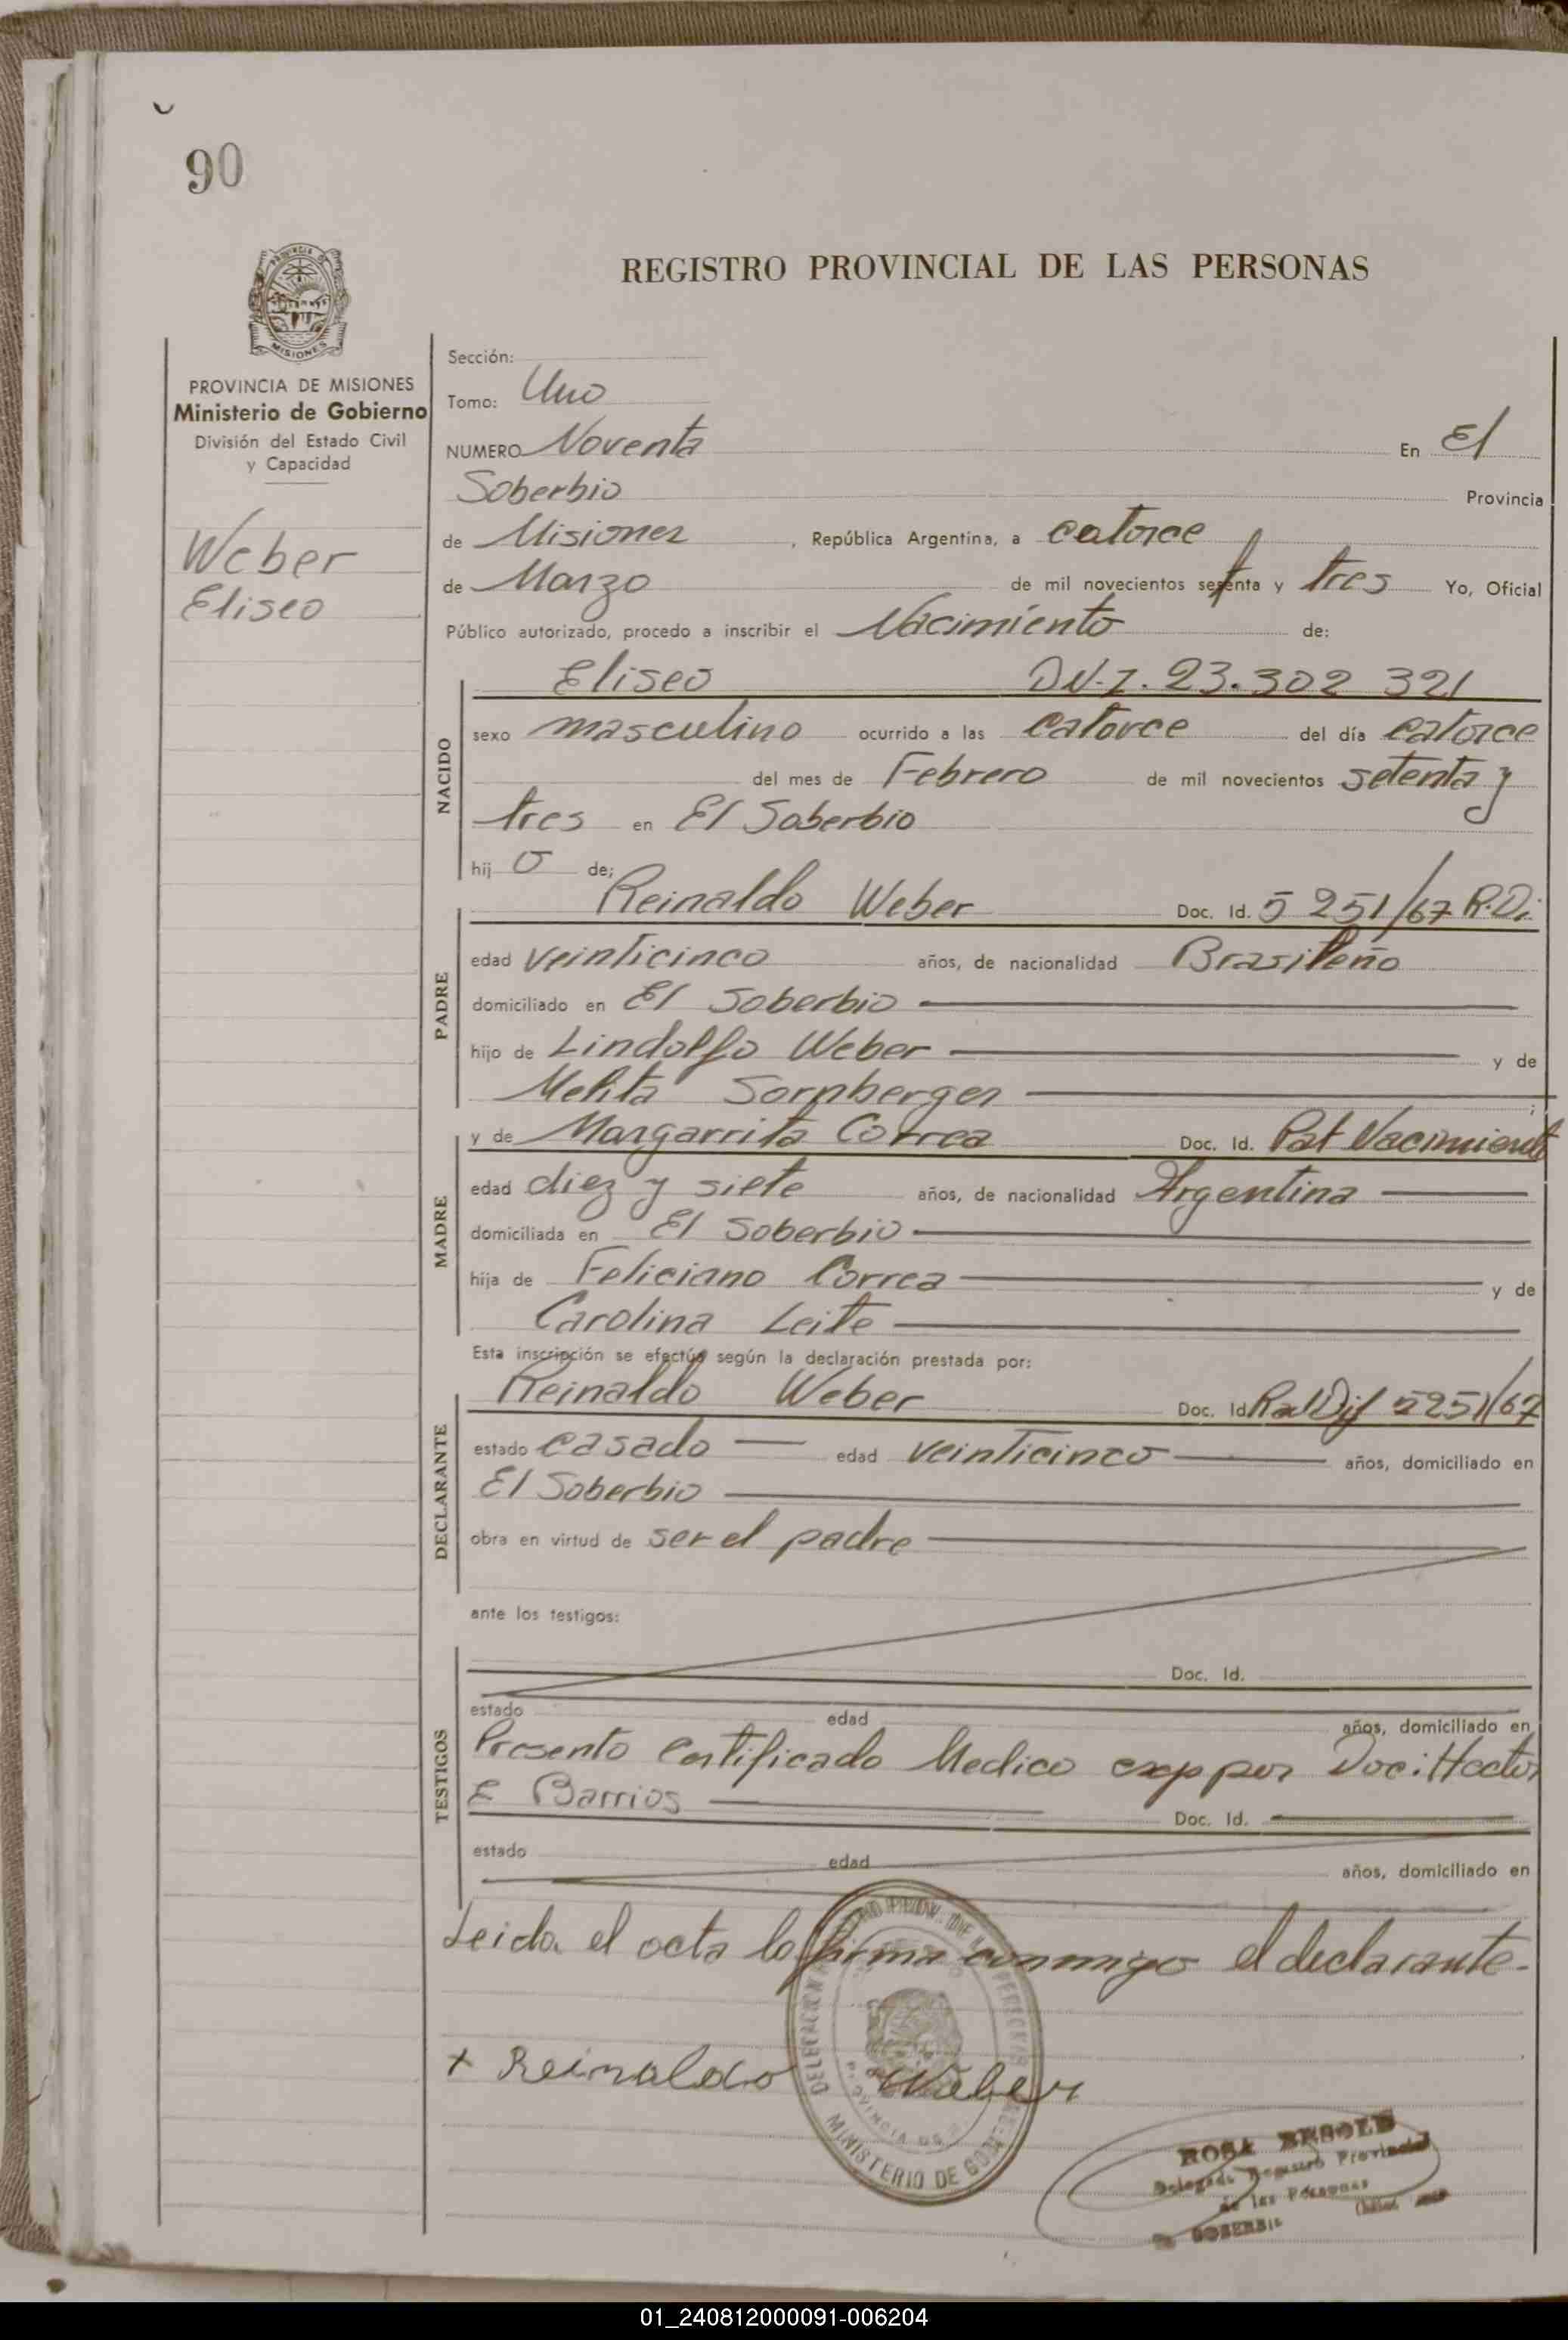 90
REGISTRO PROVINCIAL DE LAS PERSONAS
MISIONES
PROVINCIA DE MISIONES
Ministerio de Gobierno
División del Estado Civil
y Capacidad
Weber
Eliseo
Sección:
Tomo: Uno
NUMERO Noventa En El
Soberbio Provincia
de Misiones, República Argentina, a catorce
de Marzo de mil novecientos setenta y tres Yo, Oficial
Público autorizado, procedo a inscribir el Nacimiento de:
NACIDO
Eliseo D.N.I. 23.302 321
sexo masculino ocurrido a las catorce del día catorce
del mes de Febrero de mil novecientos setenta y
tres en El Soberbio
hij o de;
PADRE
Reinaldo Weber Doc. Id. 5 251/67 R.Di.
edad veinticinco años, de nacionalidad Brasileño
domiciliado en El Soberbio
hijo de Lindolfo Weber y de
Melita Sornberger ;
MADRE
y de Margarrita Correa Doc. Id. Pat Nacimiento
edad diez y siete años, de nacionalidad Argentina
domiciliada en El Soberbio
hija de Feliciano Correa y de
Carolina Leite
Esta inscripción se efectúa según la declaración prestada por:
DECLARANTE
Reinaldo Weber Doc. Id. 5251/67
estado casado edad veinticinco años, domiciliado en
El Soberbio
obra en virtud de ser el padre
ante los testigos:
TESTIGOS
Doc. Id.
estado edad años, domiciliado en
Presento Certificado Medico exp por Doc: Hector
E Barrios Doc. Id.
estado edad años, domiciliado en
Leida el acta la firma conmigo el declarante.
x Reinaldo Weber
MINISTERIO DE
ROSA
Delegada Registro Provincial
de las Personas
SOBERBIO
01_240812000091-006204